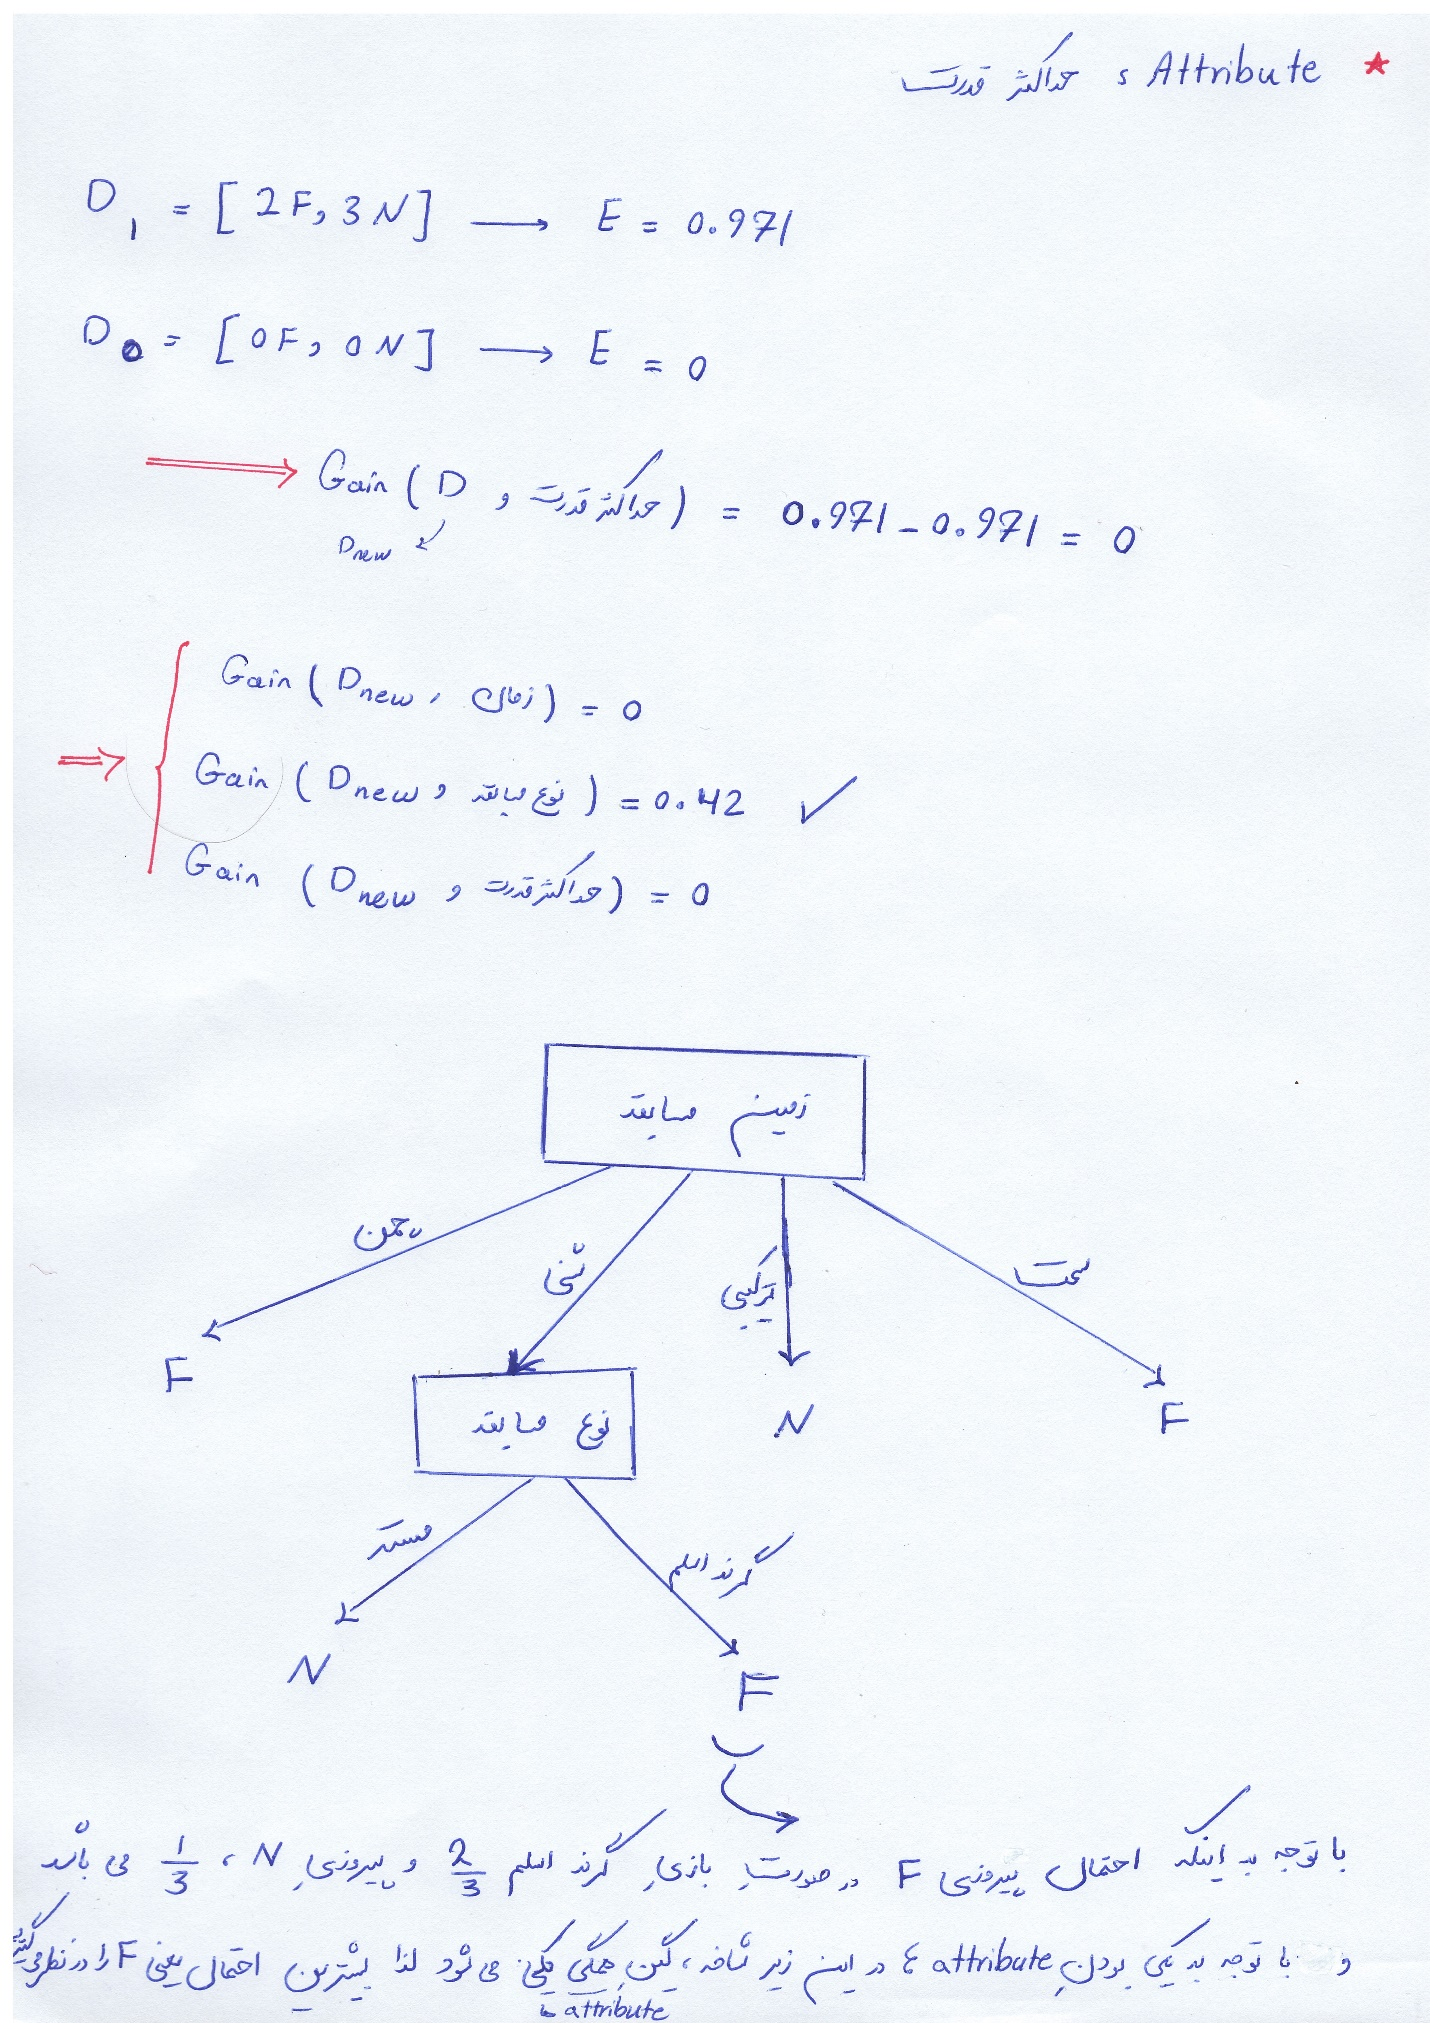 * Attribute : حداکثر قدرت
D₁ = [2F, 3N] ⟶ E = 0.971
D₀ = [0F, 0N] ⟶ E = 0
⟹ Gain (D , حداکثر قدرت) = 0.971 - 0.971 = 0
Dnew
Gain (Dnew , زمان) = 0
⟹ Gain (Dnew , نوع مسابقه) = 0.42 ✓
Gain (Dnew , حداکثر قدرت) = 0
زمین مسابقه
چمن
شنی
ترکیبی
سخت
F
نوع مسابقه
N
F
مستر
گرند اسلم
N
F
با توجه به اینکه احتمال پیروزی F در صورت بازی گرند اسلم 2/3 و پیروزی N ، 1/3 می باشد
و با توجه به یکی بودن attribute ها در این زیر شاخه ، گین همگی یکی می شود لذا بیشترین احتمال یعنی F را در نظر می گیریم
attribute ها